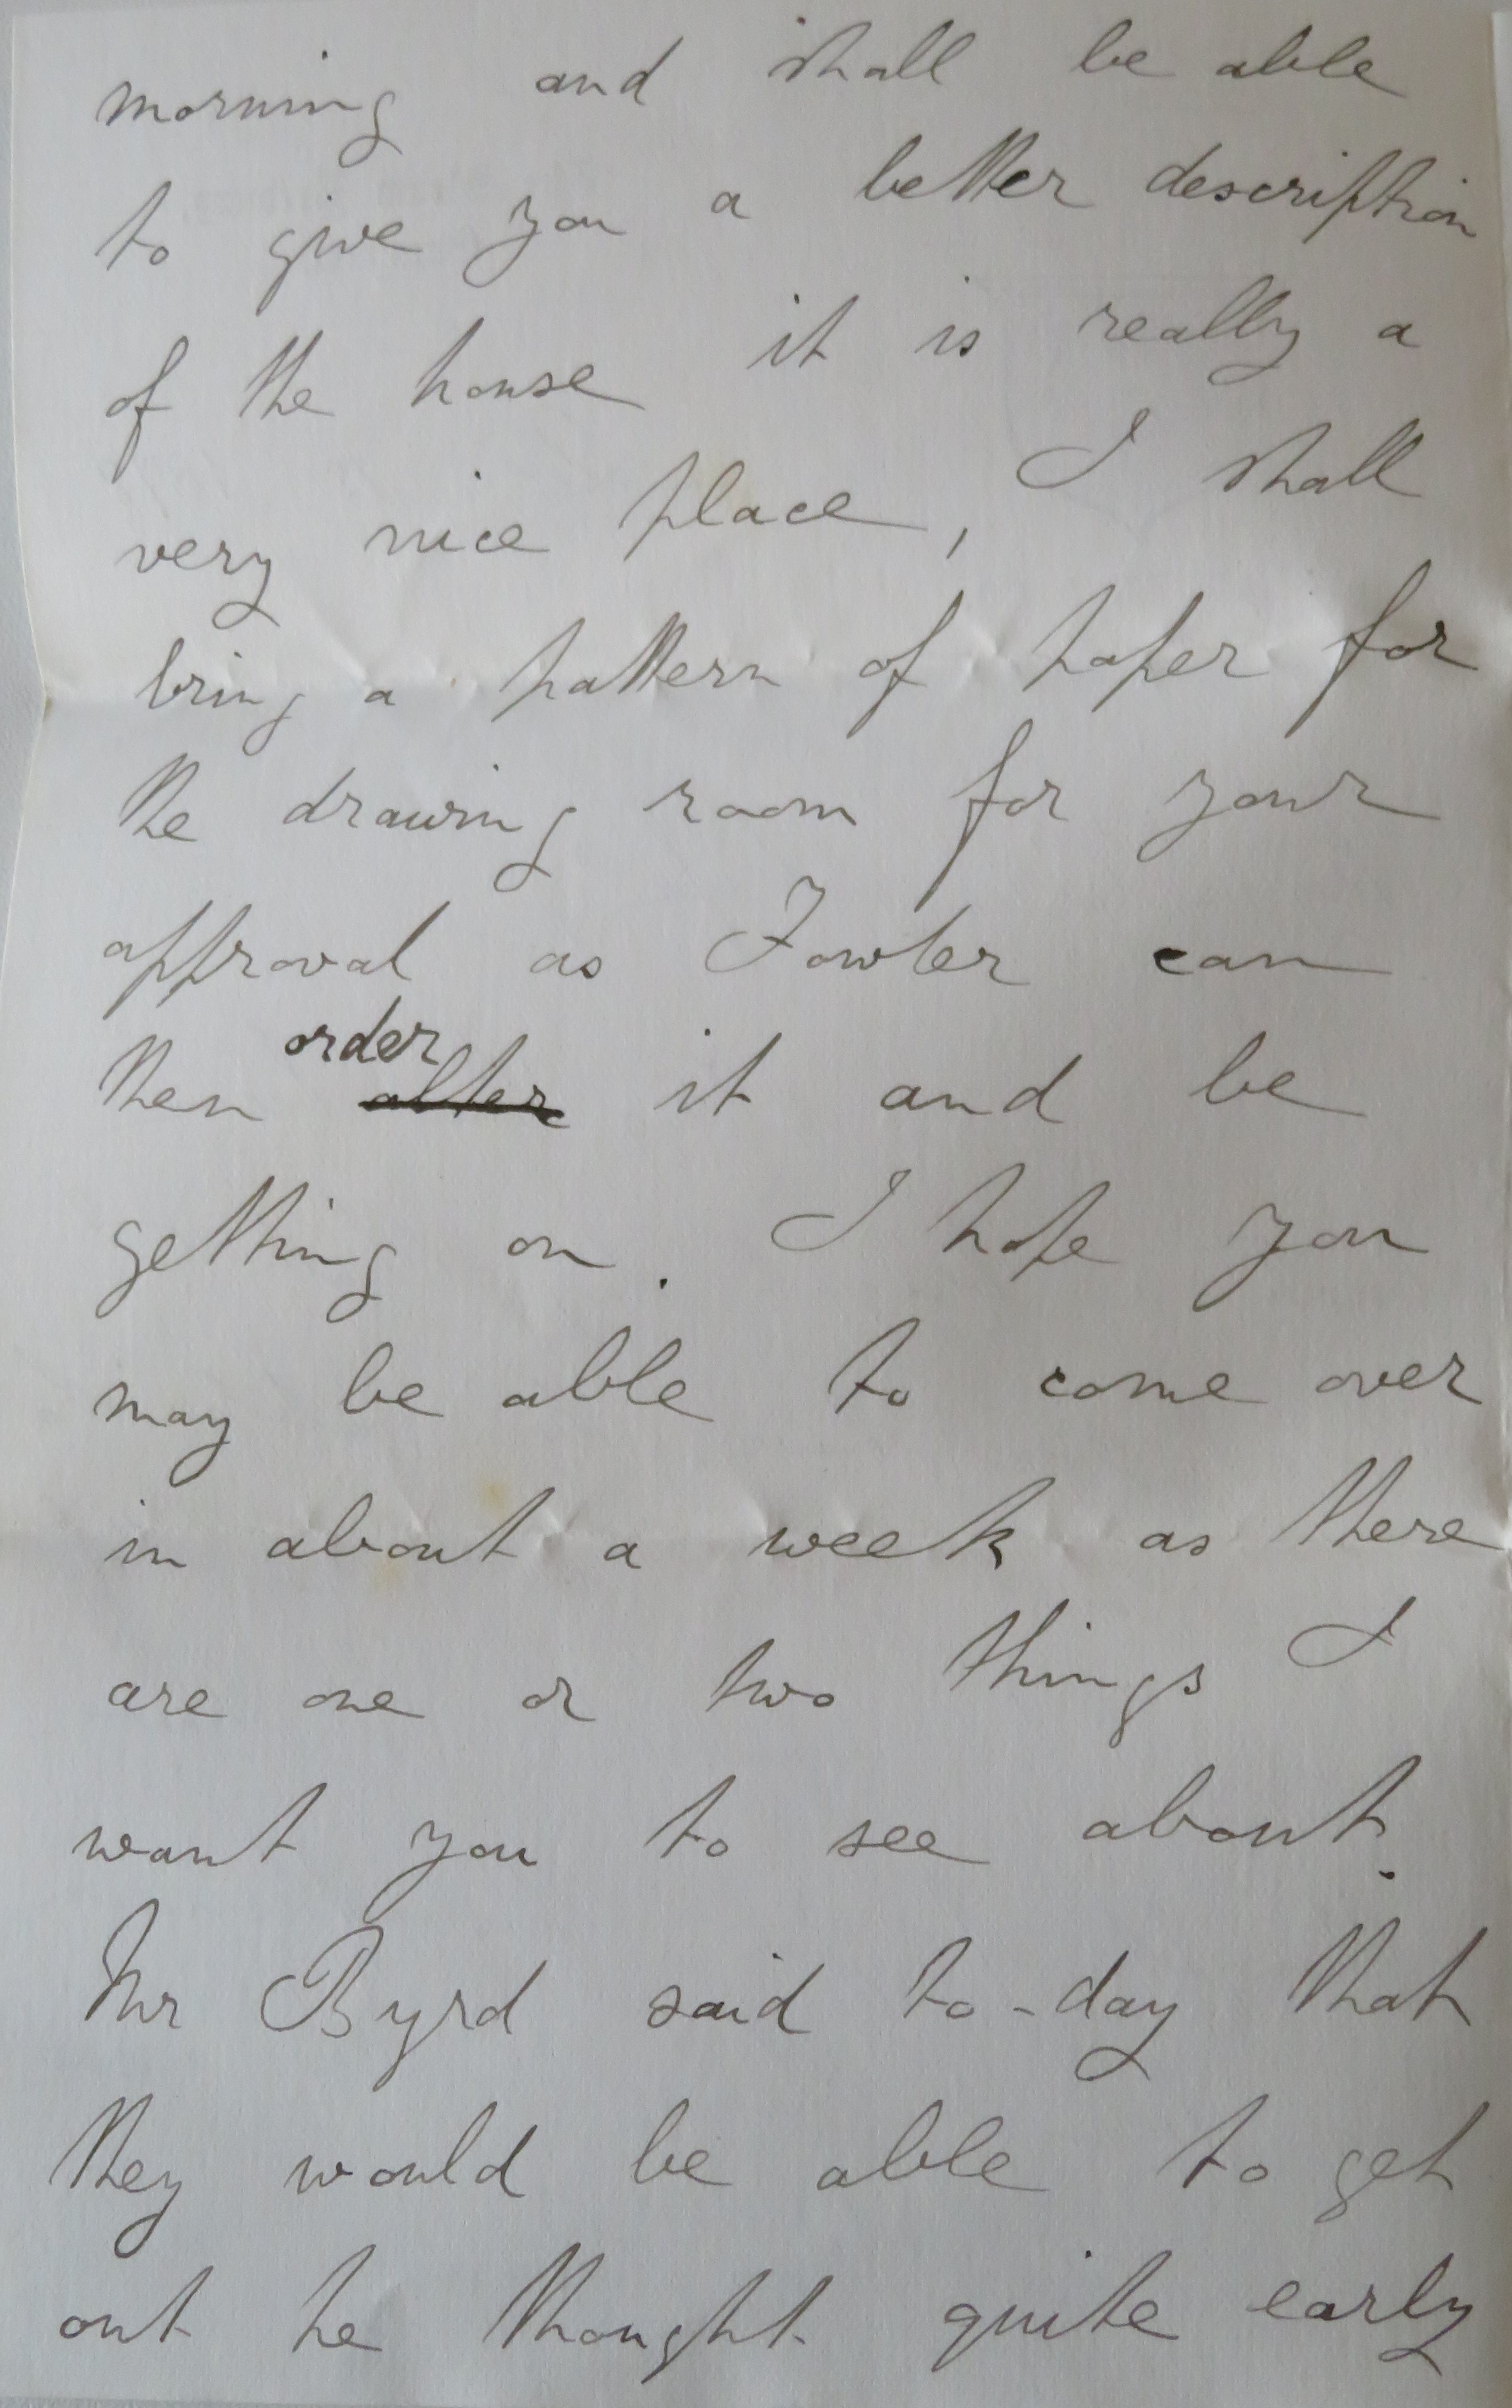 morning and shall be able
to give you a better description
of the house it is really a
very nice place, I shall
bring a pattern of paper for
the drawing room for your
approval as Fowler can
order
then alter it and be
getting on. I hope you
may be able to come over
in about a week as there
are one or two things I
want you to see about.
Mr Byrd said to-day that
they would be able to get
out he thought quite early